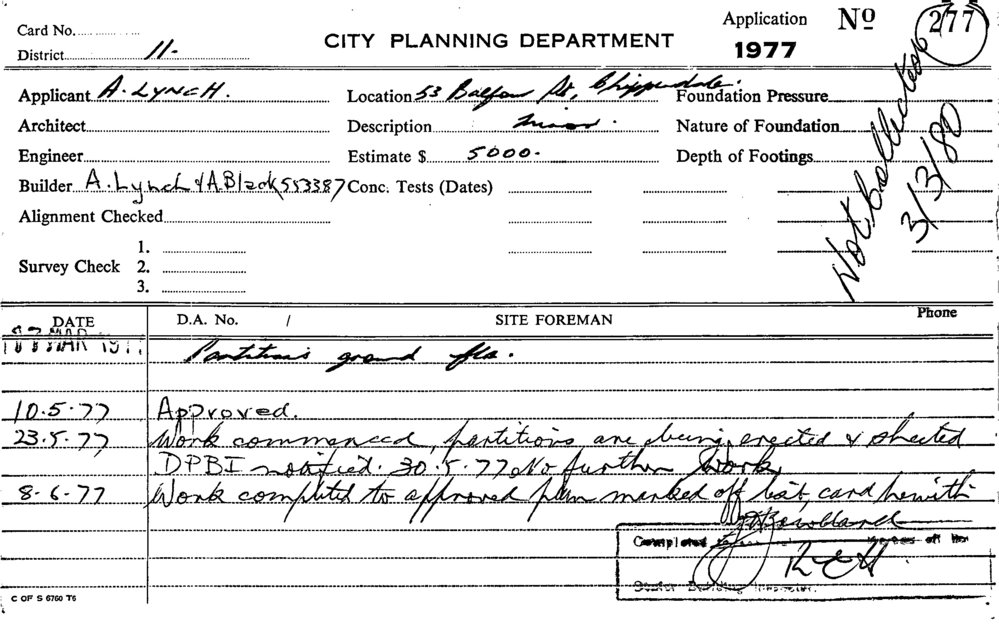 Card No.
District 11.
CITY PLANNING DEPARTMENT
Application Nº 277
1977
Applicant A. LYNCH. Location 53 Balfour St, Chippendale. Foundation Pressure
Architect Description minor. Nature of Foundation
Engineer Estimate $ 5000. Depth of Footings
Builder A. Lynch & A. Black 553387 Conc. Tests (Dates)
Alignment Checked
Not Collected
3/3/80
1.
Survey Check 2.
3.
DATE D.A. No. / SITE FOREMAN Phone
MAR 197 Partitions ground flo.
10.5.77 Approved.
23.5.77 Work commenced, partitions are being erected & sheeted
DPBI notified. 30.5.77 No further work,
8.6.77 Work completed to approved plan marked off list, card herewith
Completed off
Building
C OF S 6760 T6